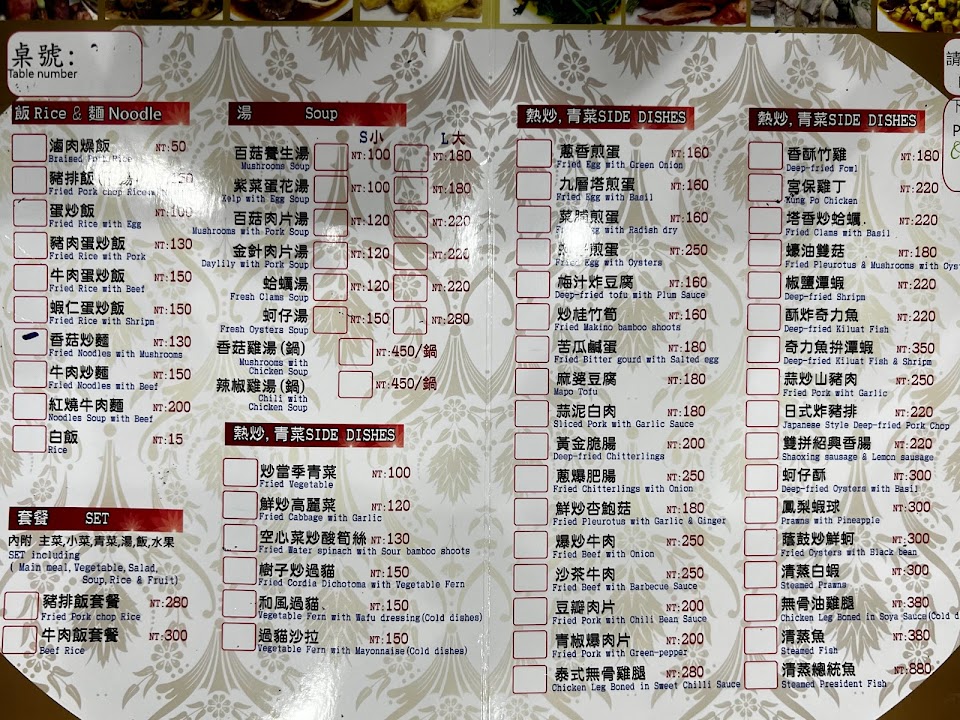 桌號:
Table number
飯 Rice & 麵 Noodle
滷肉燥飯 NT:50
Braised Rice
豬排飯
Fried Pork chop Rice
蛋炒飯 NT:100
Fried Rice with Egg
豬肉蛋炒飯 NT:130
Fried Rice with Pork
牛肉蛋炒飯 NT:150
Fried Rice with Beef
蝦仁蛋炒飯 NT:150
Fried Rice with Shripm
香菇炒麵 NT:130
Fried Noodles with Mushrooms
牛肉炒麵 NT:150
Fried Noodles with Beef
紅燒牛肉麵 NT:200
Noodles Soup with Beef
白飯 NT:15
Rice
套餐 SET
內附 主菜,小菜,青菜,湯,飯,水果
SET including
( Main meal, Vegetable, Salad,
Soup, Rice & Fruit)
豬排飯套餐 NT:280
Fried Pork chop Rice
牛肉飯套餐 NT:300
Beef Rice
湯 Soup
S小 L大
百菇養生湯 NT:100 NT:180
Mushrooms Soup
紫菜蛋花湯 NT:100 NT:180
Kelp with Egg Soup
百菇肉片湯 NT:120 NT:220
Mushrooms with Pork Soup
金針肉片湯 NT:120 NT:220
Daylily with Pork Soup
蛤蠣湯 NT:120 NT:220
Fresh Clams Soup
蚵仔湯 NT:150 NT:280
Fresh Oysters Soup
香菇雞湯(鍋) NT:450/鍋
Mushrooms with
Chicken Soup
辣椒雞湯(鍋) NT:450/鍋
Chili with
Chicken Soup
熱炒,青菜SIDE DISHES
炒當季青菜 NT:100
Fried Vegetable
鮮炒高麗菜 NT:120
Fried Cabbage with Garlic
空心菜炒酸筍絲 NT:130
Fried Water spinach with Sour bamboo shoots
樹子炒過貓 NT:150
Fried Cordia Dichotoma with Vegetable Fern
和風過貓 NT:150
Vegetable Fern with Wafu dressing(Cold dishes)
過貓沙拉 NT:150
Vegetable Fern with Mayonnaise(Cold dishes)
熱炒,青菜SIDE DISHES
蔥香煎蛋 NT:160
Fried Egg with Green Onion
九層塔煎蛋 NT:160
Fried Egg with Basil
菜脯煎蛋 NT:160
Fried Egg with Radish dry
煎蛋 NT:250
Fried Egg with Oysters
梅汁炸豆腐 NT:160
Deep-fried tofu with Plum Sauce
炒桂竹筍 NT:160
Fried Makino bamboo shoots
苦瓜鹹蛋 NT:180
Fried Bitter gourd with Salted egg
麻婆豆腐 NT:180
Mapo Tofu
蒜泥白肉 NT:180
Sliced Pork with Garlic Sauce
黃金脆腸 NT:200
Deep-fried Chitterlings
蔥爆肥腸 NT:250
Fried Chitterlings with Onion
鮮炒杏鮑菇 NT:180
Fried Pleurotus with Garlic & Ginger
爆炒牛肉 NT:250
Fried Beef with Onion
沙茶牛肉 NT:250
Fried Beef with Barbecue Sauce
豆瓣肉片 NT:200
Fried Pork with Chili Bean Sauce
青椒爆肉片 NT:200
Fried Pork with Green-pepper
泰式無骨雞腿 NT:280
Chicken Leg Boned in Sweet Chilli Sauce
熱炒,青菜SIDE DISHES
香酥竹雞 NT:220
Deep-fried Fowl
宮保雞丁 NT:220
Kung Po Chicken
塔香炒蛤蠣 NT:220
Fried Clams with Basil
蠔油雙菇 NT:180
Fried Pleurotus & Mushrooms with
椒鹽潭蝦 NT:220
Deep-fried Shripm
酥炸奇力魚 NT:220
Deep-fried Kiluat Fish
奇力魚拚潭蝦 NT:350
Deep-fried Kiluat Fish & Shripm
蒜炒山豬肉 NT:250
Fried Pork wiht Garlic
日式炸豬排 NT:220
Japanese Style Deep-fried Pork Chop
雙拼紹興香腸 NT:220
Shaoxing sausage & Lemon sausage
蚵仔酥 NT:300
Deep-fried Oysters with Basil
鳳梨蝦球 NT:300
Prawns with Pineapple
蔭鼓炒鮮蚵 NT:300
Fried Oysters with Black bean
清蒸白蝦 NT:300
Steamed Prawns
無骨油雞腿 NT:380
Chicken Leg Boned in Soya Sauce(Cold
清蒸魚 NT:380
Steamed Fish
清蒸總統魚 NT:880
Steamed President Fish
請